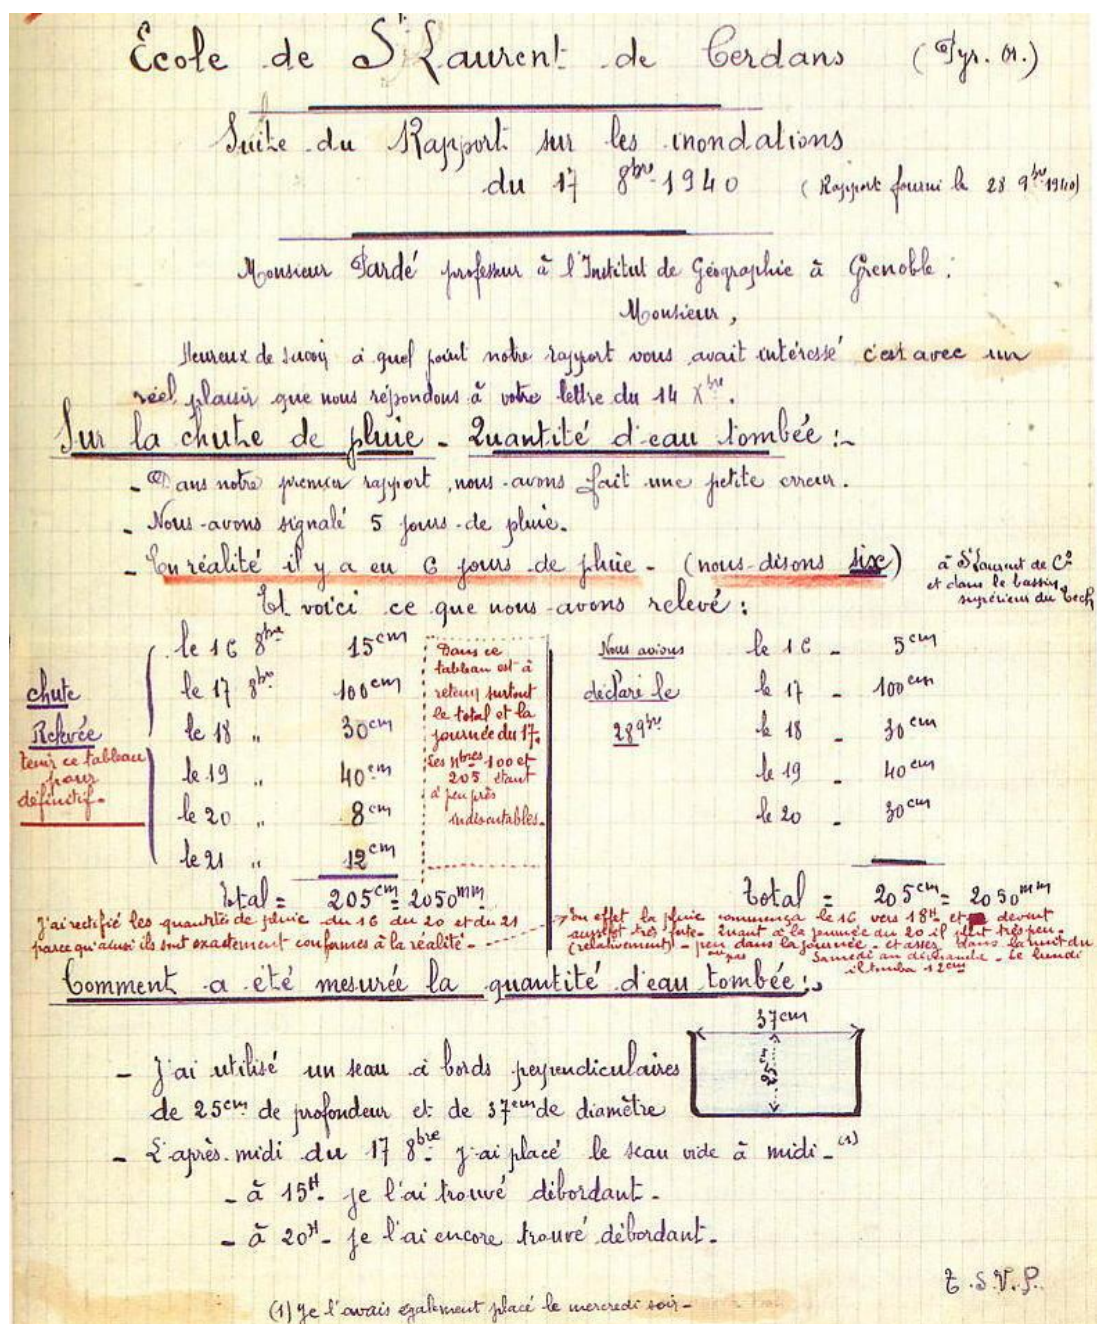 École de St Laurent de Cerdans (Pyr. Or.)
Suite du Rapport sur les inondations
du 17 8bre 1940 (Rapport fourni le 28 9bre 1940)
Monsieur Pardé professeur à l'Institut de Géographie à Grenoble :
Monsieur,
Heureux de savoir à quel point notre rapport vous avait intéressé c'est avec un
réel plaisir que nous répondons à votre lettre du 14 Xbre.
Sur la chute de pluie - Quantité d'eau tombée :-
- Dans notre premier rapport, nous avons fait une petite erreur.
- Nous avons signalé 5 jours de pluie.
- En réalité il y a eu 6 jours de pluie - (nous disons six)
à St Laurent de Cs
et dans le bassin
supérieur du Tech
Et voici ce que nous avons relevé :
chute
Relevée
tenir ce tableau
pour
définitif -
le 16 8bre 15cm
le 17 8bre 100cm
le 18 " 30cm
le 19 " 40cm
le 20 " 8cm
le 21 " 12cm
Total = 205cm = 2050mm
Dans ce
tableau est à
retenir surtout
le total et la
journée du 17.
Les nbres 100 et
205 étant
à peu près
indiscutables.
Nous avions
déclaré le
28 9bre
le 16 - 5cm
le 17 - 100cm
le 18 - 30cm
le 19 - 40cm
le 20 - 30cm
Total = 205cm = 2050mm
J'ai rectifié les quantités de pluie du 16 du 20 et du 21
parce qu'ainsi ils sont exactement conformes à la réalité -
En effet la pluie commença le 16 vers 18H et devint
aussitôt très forte. Quant à la journée du 20 il plut très peu
(relativement) - peu ou pas dans la journée - et assez dans la nuit du
Samedi au dimanche - Le lundi
il tomba 12cm
Comment a été mesurée la quantité d'eau tombée :-
37cm
25cm
- J'ai utilisé un seau à bords perpendiculaires
de 25cm de profondeur et de 37cm de diamètre
- L'après-midi du 17 8bre j'ai placé le seau vide à midi - (1)
- à 15H - je l'ai trouvé débordant -
- à 20H - je l'ai encore trouvé débordant -
T.S.V.P.
(1) Je l'avais également placé le mercredi soir -